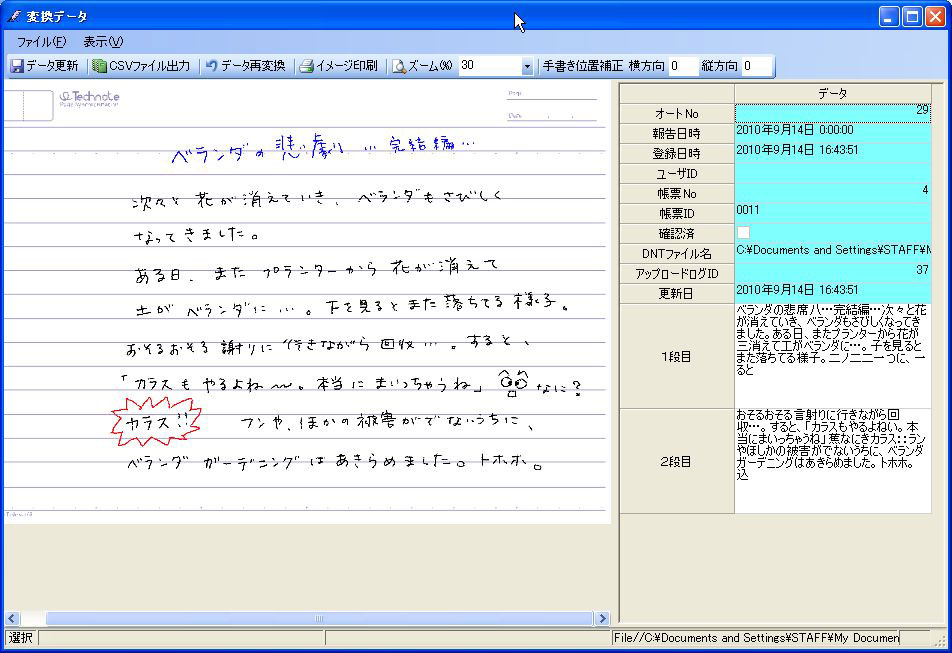 変換データ
ファイル(F) 表示(V)
データ更新 CSVファイル出力 データ再変換 イメージ印刷 ズーム(%) 30 手書き位置補正 横方向 0 縦方向 0
Technote
Page
Date
ベランダの悲劇 … 完結編…
次々と 花が消えていき、ベランダもさびしく
なってきました。
ある日、また プランターから 花が消えて
土が ベランダに …。下を見るとまた落ちてる 様子。
おそるおそる 謝りに 行きながら 回収 …。すると、
「カラスも やるよね〜。本当に まいっちゃうね」 なに?
カラス!! フンや、ほかの被害がでないうちに、
ベランダ ガーデニングは あきらめました。トホホ。
データ
オートNo 29
報告日時 2010年9月14日 0:00:00
登録日時 2010年9月14日 16:43:51
ユーザID
帳票No 4
帳票ID 0011
確認済
DNTファイル名 C:¥Documents and Settings¥STAFF¥M
アップロードログID 37
更新日 2010年9月14日 16:43:51
1段目
ベランダの悲席八…完結編…次々と花
が消えていき、ベランダもさびしくなってき
ました。ある日、またプランターから花が
三消えて工がベランダに…。子を見ると
また落ちてる様子。二ノ二二一つに、一
ると
2段目
おそるおそる言射りに行きながら回
収…。すると、「カラスもやるよねい。本
当にまいっちゃうね」蕉なにきカラス::ラン
やほしかの被害がでないうちに、ベランダ
ガーデニングはあきらめました。トホホ。
込
選択
File//C:¥Documents and Settings¥STAFF¥My Documen